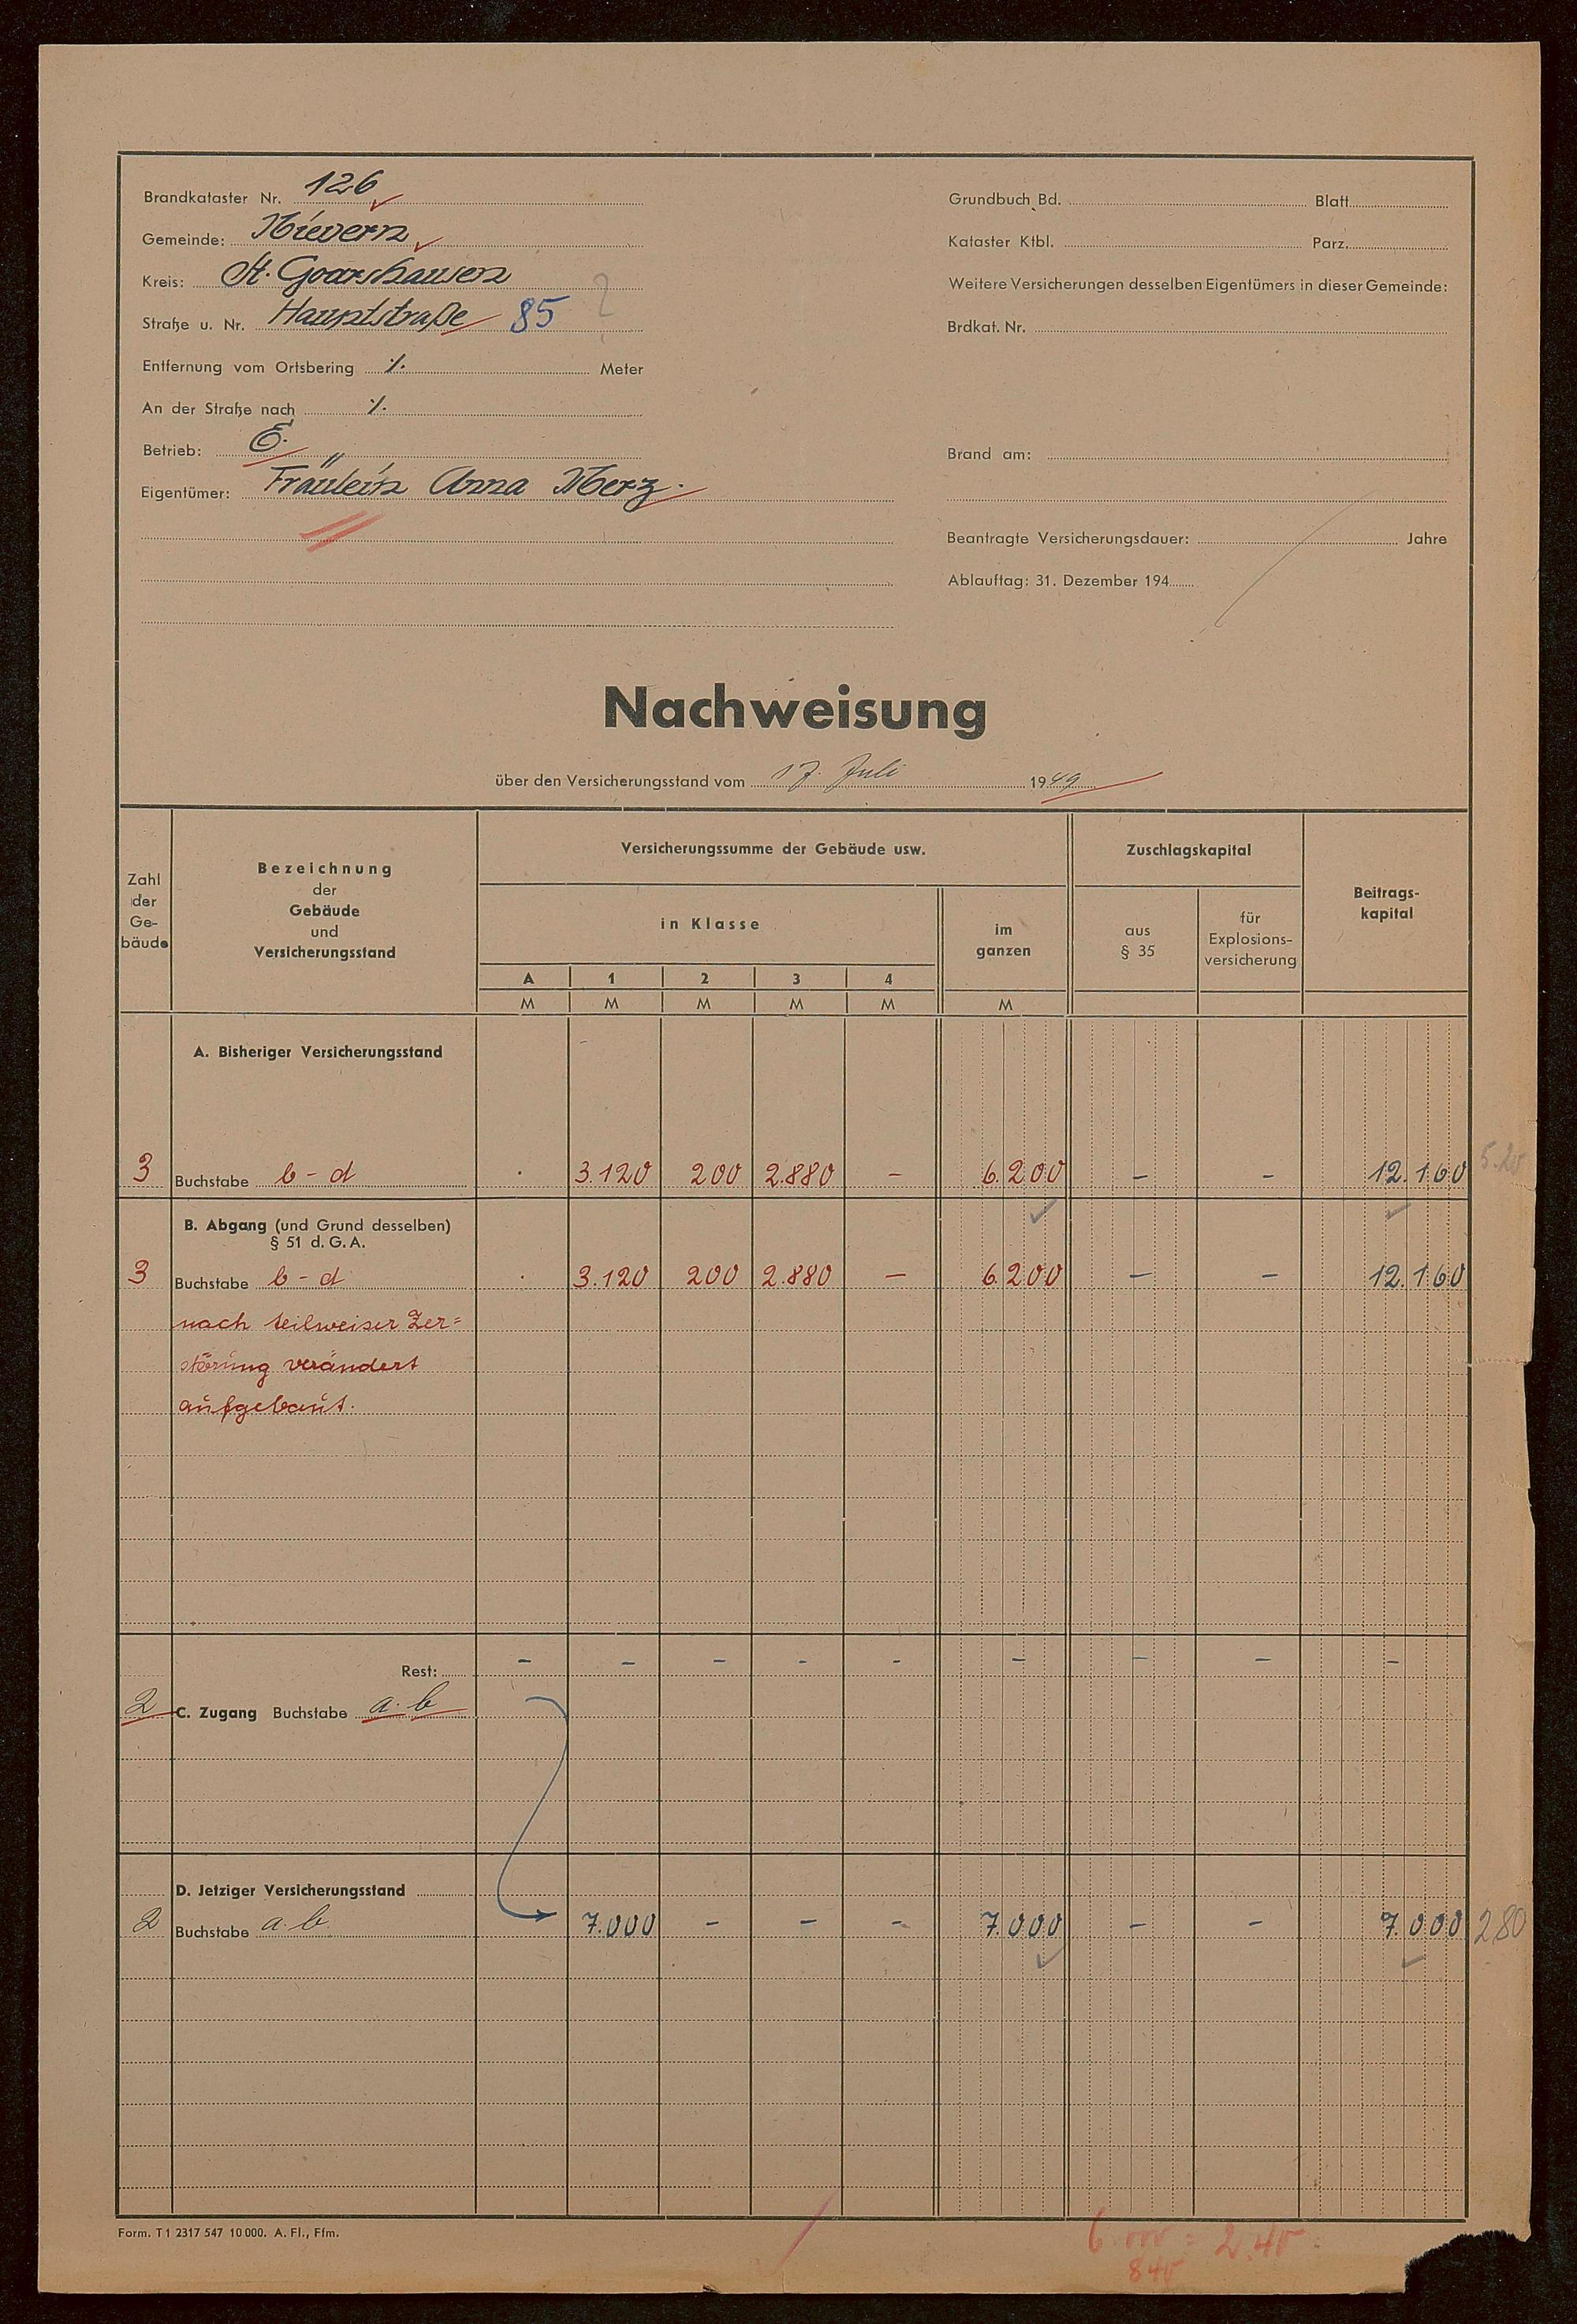 Brandkataster Nr. 126
Gemeinde: Nievern
Kreis: St. Goarshausen
Straße u. Nr. Hauptstraße 85 ?
Entfernung vom Ortsbering ./. Meter
An der Straße nach ./.
Betrieb: E.
Eigentümer: Fräulein Anna Merz.
Grundbuch Bd. Blatt
Kataster Ktbl. Parz.
Weitere Versicherungen desselben Eigentümers in dieser Gemeinde:
Brdkat. Nr.
Brand am:
Beantragte Versicherungsdauer: Jahre
Ablauftag: 31. Dezember 194
Nachweisung
über den Versicherungsstand vom 17. Juli 1949
Zahl der Ge-bäude
Bezeichnung
der
Gebäude
und
Versicherungsstand
Versicherungssumme der Gebäude usw.
in Klasse
A 1 2 3 4
M M M M M
im
ganzen
M
Zuschlagskapital
aus
§ 35
für
Explosions-
versicherung
Beitrags-
kapital
A. Bisheriger Versicherungsstand
3 Buchstabe b - d . 3.120 200 2.880 – 6.200 – – 12.160
B. Abgang (und Grund desselben)
§ 51 d. G. A.
3 Buchstabe b - d . 3.120 200 2.880 – 6.200 – – 12.160
nach teilweiser Zer=
störung verändert
aufgebaut.
Rest: – – – – – – – – –
2 C. Zugang Buchstabe a. b
D. Jetziger Versicherungsstand
2 Buchstabe a. b. 7.000 – – – 7.000 – – 7.000 280
Form. T 1 2317 547 10 000. A. Fl., Ffm.